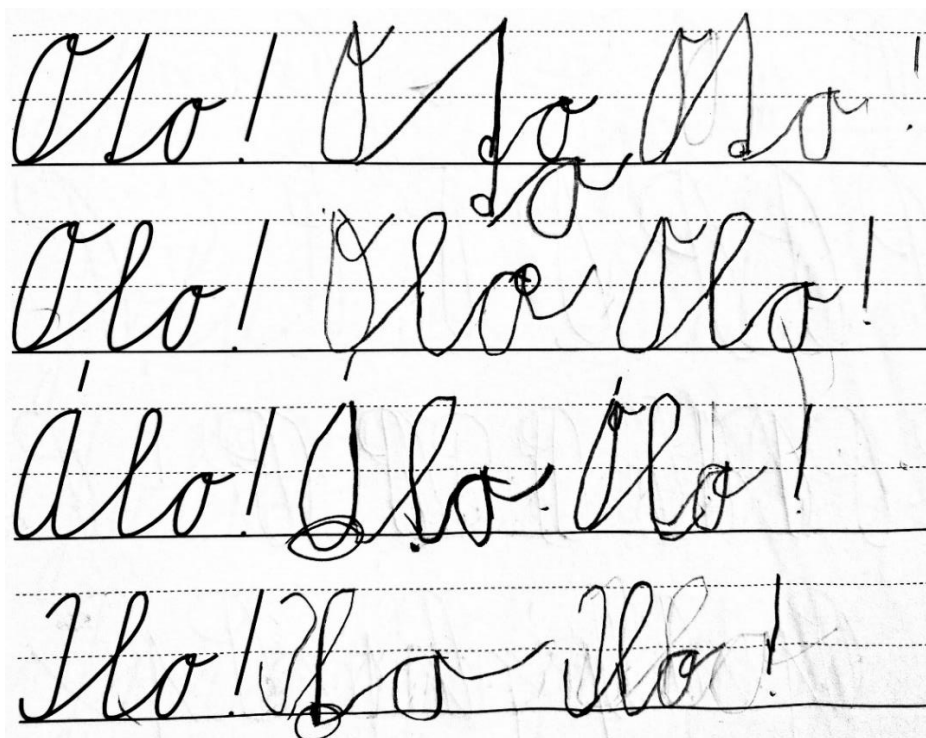 Oso! Oso Oso!
Olo! Olo Olo!
Álo! Álo Álo!
Ilo! Ilo Ilo!